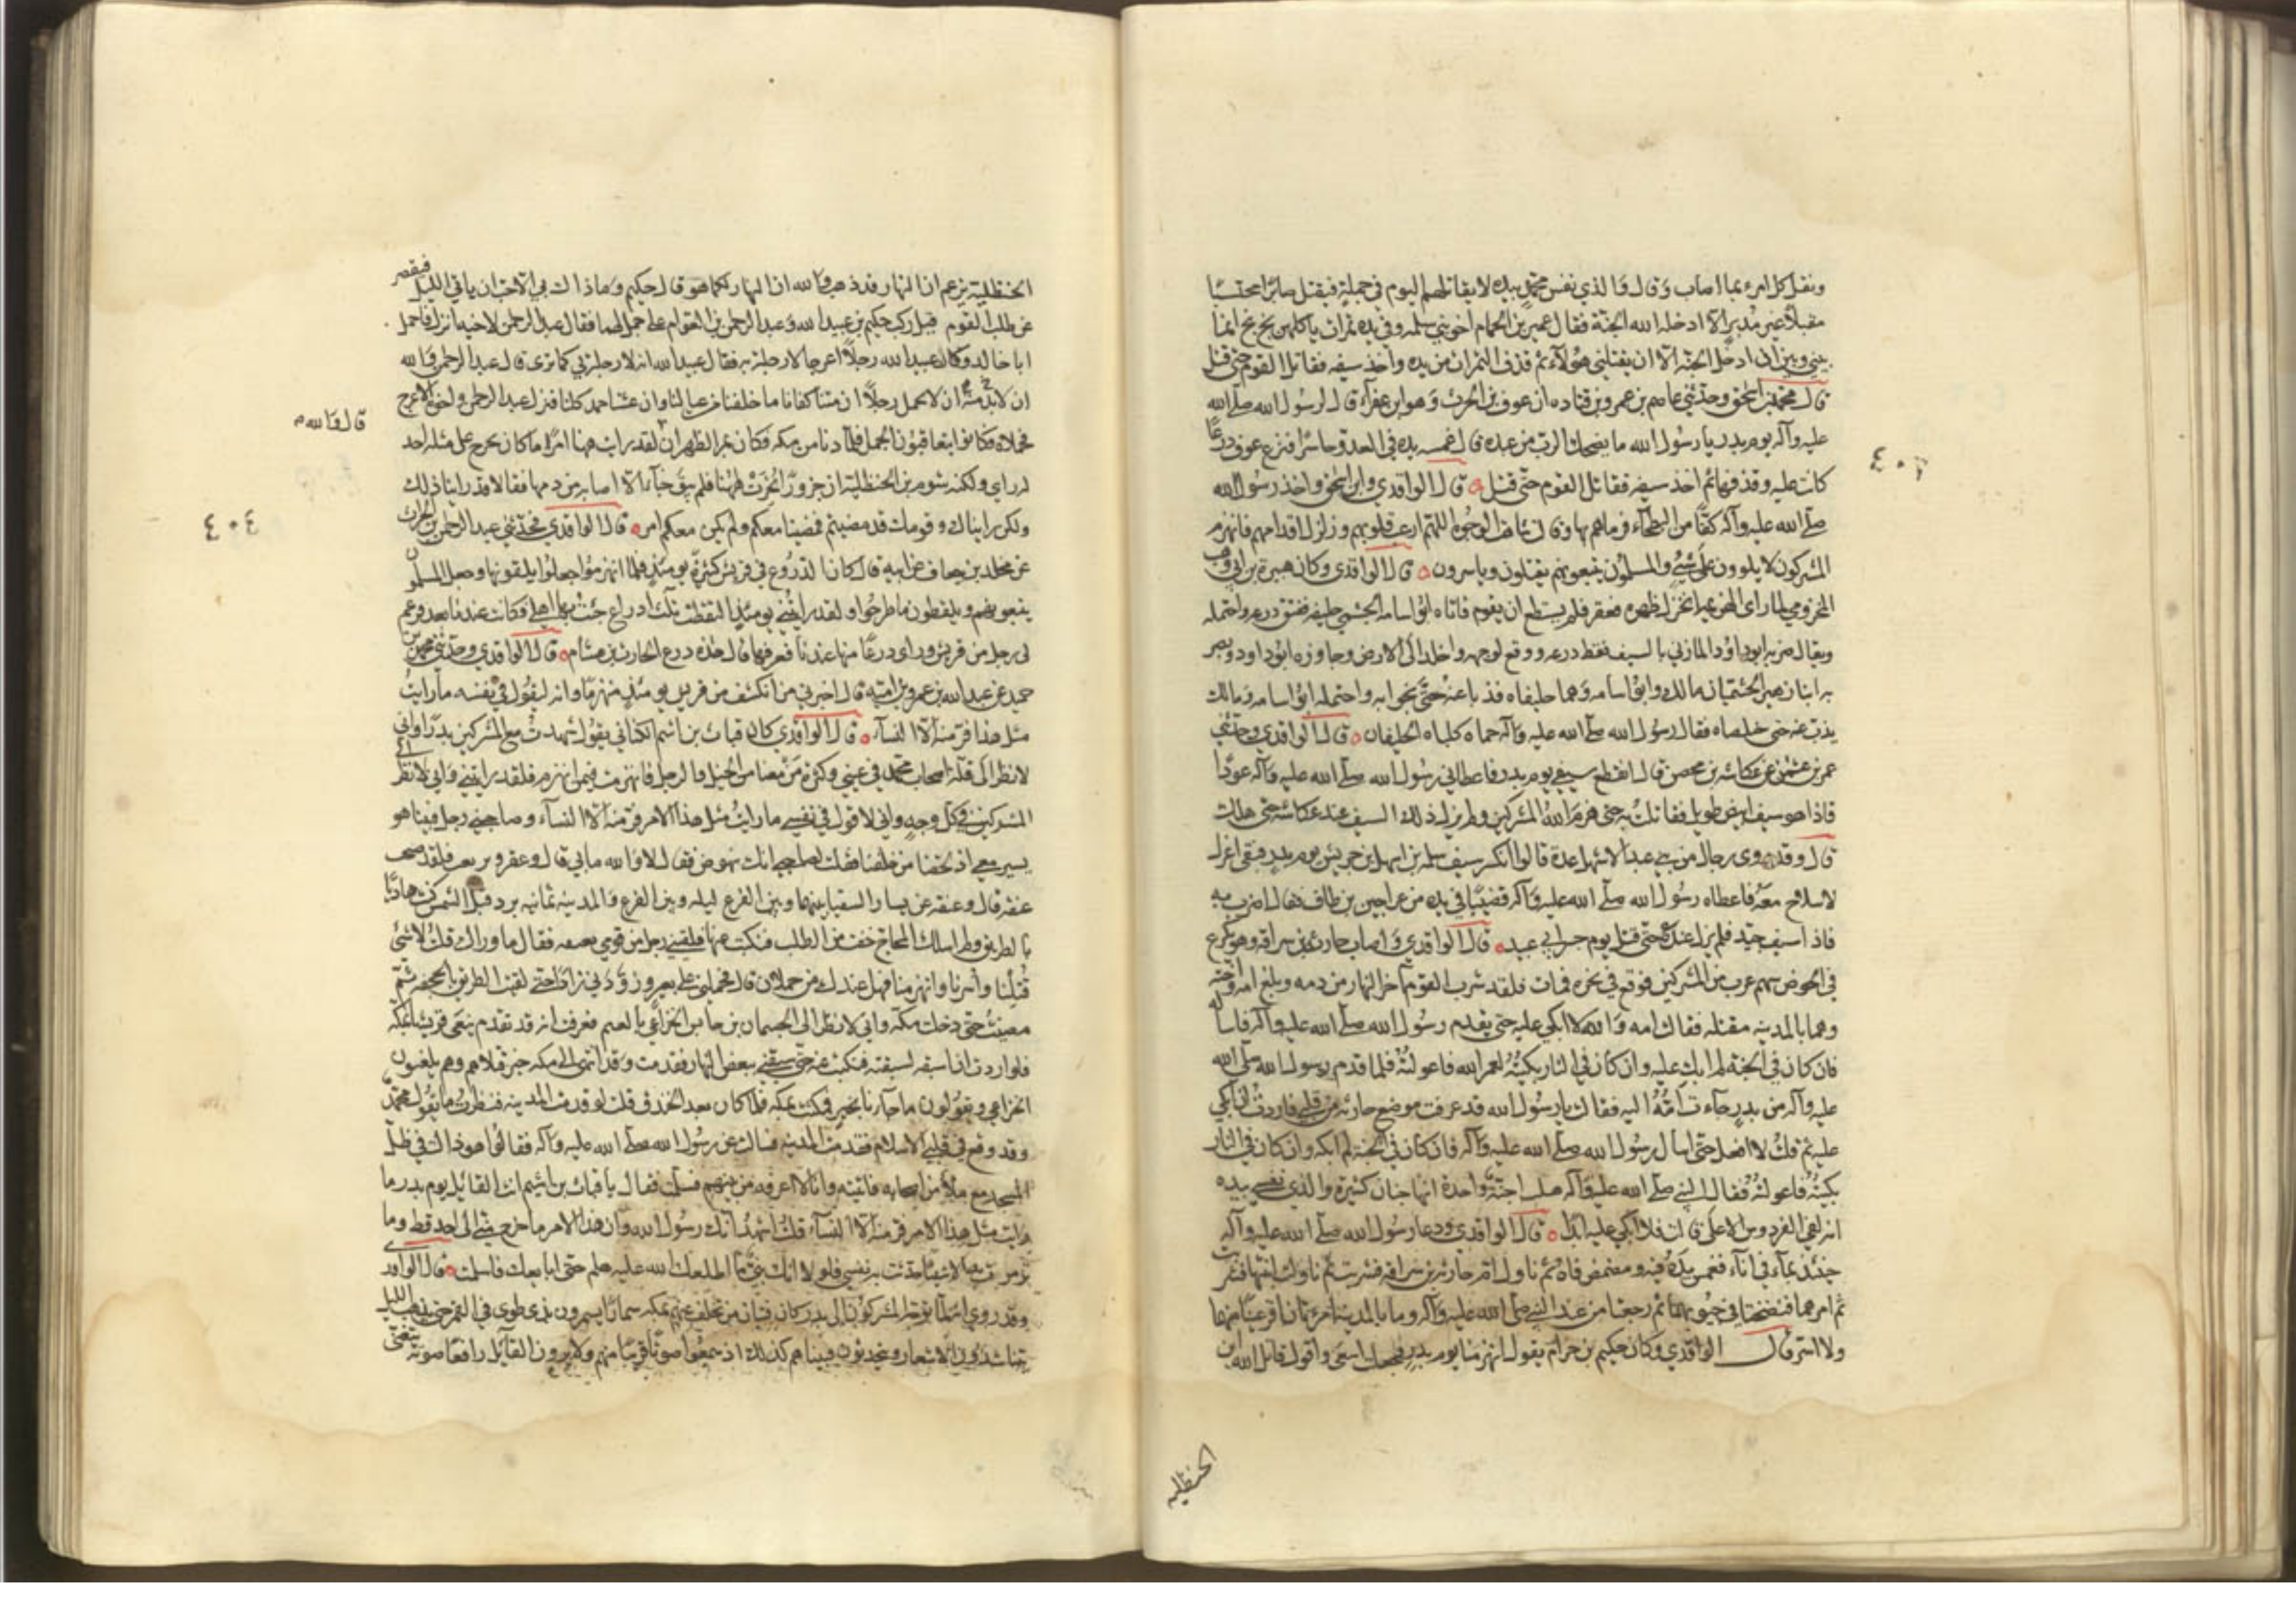 ونفل كل امرء بما اصاب وقال والذي نفس محمد بيده لا يقاتلهم اليوم في جملة فيقتل صابرا محتسبا
مقبلا غير مدبر الا ادخله الله الجنة فقال عمير بن الحمام اخو بني سلمة وفي يده تمرات ياكلهن بخ بخ افما
بيني وبين ان ادخل الجنة الا ان يقتلني هؤلاء ثم قذف التمرات من يده واخذ سيفه فقاتل القوم حتى قتل
قال محمد بن اسحق وحدثني عاصم بن عمرو بن قتاده ان عوف بن الحرث وهو ابن عفراء قال لرسول الله صلى الله
عليه وآله يوم بدر يا رسول الله ما يضحك الرب من عبده قال غمسه يده في العدو حاسرا فنزع عوف درعا
كانت عليه وقذفها ثم اخذ سيفه فقاتل القوم حتى قتل قال الواقدي وابن اسحق واخذ رسول الله
صلى الله عليه وآله كفا من البطحاء فرماهم بها وقال شاهت الوجوه اللهم ارعب قلوبهم وزلزل اقدامهم فانهزم
المشركون لا يلوون على شيء والمسلمون يتبعونهم يقتلون وياسرون قال الواقدي وكان هبيرة بن ابي وهب
المخزومي لما راى الهزيمة انخزل ظهره فعقر فلم يستطع ان يقوم فاتاه ابو اسامه الجشمي حليفه ففتق درعه واحتمله
ويقال ضربه ابو داود المازني بالسيف فقط درعه ووقع لوجهه واخلد الى الارض وجاوزه ابو داود وبصر
به ابنا زهير الجشميان مالك وابو اسامه وهما حليفاه فذبا عنه حتى نجوا به واحتمله ابو اسامه ومالك
يذب عنه حتى خلصاه فقال رسول الله صلى الله عليه وآله حماه كلباه الحليفان قال الواقدي وحدثني
عمر بن عثمن عن عكاشه بن محصن قال انقطع سيفي يوم بدر فاعطاني رسول الله صلى الله عليه وآله عودا
فاذا هو سيف ابيض طويل فقاتلت به حتى هزم الله المشركين ولم يزل ذلك السيف عند عكاشه حتى هلك
قال وقد روى رجال من بني عبد الاشهل عدة قالوا انكسر سيف سلمه بن اسلم بن حريش يوم بدر فبقي اعزل
لا سلاح معه فاعطاه رسول الله صلى الله عليه وآله قضيبا في يده من عراجين بن طاب فقال اضرب به
فاذا سيف جيد فلم يزل عنده حتى قتل يوم جسر ابي عبيد قال الواقدي واصاب حارثة بن سراقه وهو يكرع
في الحوض سهم غرب من المشركين فوقع في نحره فمات فلقد شرب القوم آخر النهار من دمه وبلغ امه واخته
وهما بالمدينه مقتله فقالت امه والله لا ابكي عليه حتى يقدم رسول الله صلى الله عليه وآله فاساله
فان كان في الجنة لم ابك عليه وان كان في النار بكيته لعمر الله فاعولته فلما قدم رسول الله صلى الله
عليه وآله من بدر جاءت امه اليه فقالت يا رسول الله قد عرفت موضع حارثه من قلبي فاردت ان ابكي
عليه ثم قلت لا افعل حتى اسال رسول الله صلى الله عليه وآله فان كان في الجنة لم ابكه وان كان في النار
بكيته فاعولته فقال النبي صلى الله عليه وآله هبلت اجنة واحدة انها جنان كثيرة والذي نفسي بيده
انه لفي الفردوس الاعلى قالت فلا ابكي عليه ابدا قال الواقدي ودعا رسول الله صلى الله عليه وآله
حينئذ بماء في اناء فغمس يده فيه ومضمض فاه ثم ناول ام حارثه بن سراقه فشربت ثم ناولت ابنتها فشربت
ثم امرهما فنضحتا في جيوبهما ثم رجعتا من عند النبي صلى الله عليه وآله وما بالمدينة امرءتان اقر عينا منهما
ولا اسر قال الواقدي وكان حكيم بن حزام يقول انهزمنا يوم بدر فجعلت اسعى واقول قاتل الله ابن
الحنظليه
الحنظلية يزعم ان النهار قد ذهب والله ان النهار لكما هو قال حكيم وما ذاك بي الا حبا ان ياتي الليل فيقصر
عن طلب القوم فيدرك حكيم بن عبيد الله وعبد الرحمن بن العوام على جمل لهما فقال عبد الرحمن لاخيه انزل فاحمل
ابا خالد وكان عبيد الله رجلا اعرجا لا رجلة به فقال عبيد الله انه لا رجلة بي كما ترى قال عبد الرحمن والله
ان لا بد منه ان لا نحمل رجلا ان متنا كفانا ما خلفنا من عيالنا وان عشنا حمد كلنا فنزل عبد الرحمن واخوه الاعرج
قال والله
فحملاه فكانوا يتعاقبون الجمل فلما دنا من مكه فكان بمر الظهران لقد رايت ههنا امرا ما كان يخرج على مثله احد
له راي ولكنه شوم بن الحنظلية ان جزورا نحرت ههنا فلم يبق خباء الا اصابه من دمها فقالا قد راينا ذلك
ولكن رايناك وقومك قد مضيتم فمضينا معكم ولم يكن معكم امر قال الواقدي فحدثني عبد الرحمن بن الحرث
٤٠٤
عن مخلد بن خفاف عن ابيه قال كانت الدروع في قريش كثيرة يومئذ فلما انهزموا جعلوا يلقونها وجعل المسلمون
يتبعونهم ويلقطون ما طرحوا ولقد رايتني يومئذ التقطت ثلث ادراع جئت بها اهلي فكانت عندنا بعد فزعم
لي رجل من قريش وراى درعا منها عندنا فعرفها قال هذه درع الحارث بن هشام قال الواقدي وحدثني محمد بن
حميد عن عبد الله بن عمرو بن امية قال اخبرني من انكشف من قريش يومئذ منهزما وانه ليقول في نفسه ما رايت
مثل هذا فر منه الا النساء قال الواقدي كان قباث بن اشيم الكناني يقول شهدت مع المشركين بدرا واني
لانظر الى قلة اصحاب محمد في عيني وكثرة من معنا من الخيل والرجل فانهزمت فيمن انهزم فلقد رايتني واني لانظر الى
المشركين في كل وجه واني لاقول في نفسي ما رايت مثل هذا الامر فر منه الا النساء وصاحبني رجل فبينا هو
يسير معي اذ لحقنا من خلفنا فقلت لصاحبي ابك نهوض فقال لا والله ما بي قال وعقر وترفعت فلقد صبحت
عنقه قال وعنقه عن يسار السقيا بينها وبين الفرع ليله وبين الفرع والمدينه ثمانيه برد قبل الشمس كنت هاديا
بالطريق ولم اسلك المحاج خفت من الطلب فنكبت عنها فلقيني رجل من قومي بعنقه فقال ما وراك قلت لا شئ
قتلنا واسرنا وانهزمنا فهل عندك من حملان قال فحملني على بعير وزودني زادا حتى لقيت الطريق بالجحفه ثم
مضيت حتى دخلت مكه واني لانظر الى الحيسمان بن حابس الخزاعي بالغميم فعرفت انه قد تقدم ينعى قريشا بمكه
فلو اردت ان اسبقه لسبقته فنكبت عنه حتى سبقني ببعض النهار فقدمت وقد انتهى الى مكه خبر قتلاهم وهم يلعنون
الخزاعي ويقولون ما جاءنا بخير فمكثت بمكه فلما كان بعد الخندق قلت لو قدمت المدينه فنظرت ما يقول محمد
وقد وقع في قلبي الاسلام فقدمت المدينه فسالت عن رسول الله صلى الله عليه وآله فقالوا هو ذاك في ظل
المسجد مع ملأ من اصحابه فاتيته وانا لا اعرفه من بينهم فسلمت فقال يا قباث بن اشيم انت القائل يوم بدر ما
رايت مثل هذا الامر فر منه الا النساء قلت اشهد انك رسول الله وان هذا الامر ما خرج مني الى احد قط وما
ترمرمت به الا شيئا حدثت به نفسي فلولا انك نبي ما اطلعك الله عليه هلم حتى ابايعك فاسلمت قال الواقدي
وقد روي انه لما توجه المشركون الى بدر كان فتيان من تخلف عنهم بمكه سمارا يسمرون بذي طوى في القمر حتى يذهب الليل
يتناشدون الاشعار ويتحدثون فبينا هم كذلك اذ سمعوا صوتا قريبا منهم ولا يرون القائل رافعا صوته يتغنى